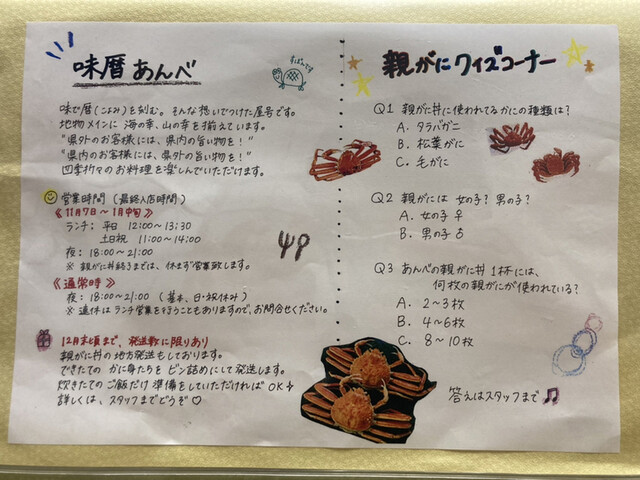 味暦 あんべ
すっぽんです
味で暦(こよみ)を刻む。そんな想いでつけた屋号です。
地物メインに 海の幸、山の幸を揃えています。
"県外のお客様には、県内の旨い物を!"
"県内のお客様には、県外の旨い物を!"
四季折々のお料理を楽しんでいただけます。
営業時間 (最終入店時間)
《11月7日〜1月中旬》
ランチ: 平日 12:00〜13:30
土日祝 11:00〜14:00
夜: 18:00〜21:00
※ 親がに丼終了までは、休まず営業致します。
《通常時》
夜: 18:00〜21:00 (基本、日・祝休み)
※ 連休はランチ営業を行うこともありますので、お問合せください。
12月末頃まで、発送数に限りあり
親がに丼の地方発送もしております。
できたての かに身たちを ビン詰めにして発送します。
炊きたての ご飯だけ 準備をしていただければ OK
詳しくは、スタッフまでどうぞ♡
親がにクイズコーナー
Q1 親がに丼に使われてるかにの種類は?
A. タラバガニ
B. 松葉がに
C. 毛がに
Q2 親がには 女の子? 男の子?
A. 女の子♀
B. 男の子♂
Q3 あんべの親がに丼 1杯には、
何枚の親がにが使われている?
A. 2〜3枚
B. 4〜6枚
C. 8〜10枚
答えはスタッフまで♫